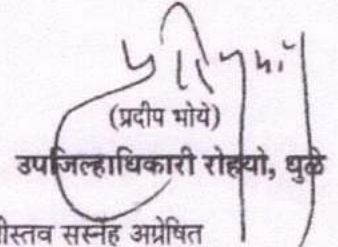 (प्रदीप भोये)
उपजिल्हाधिकारी रोहयो, धुळे
स्तव सस्नेह अग्रेषित